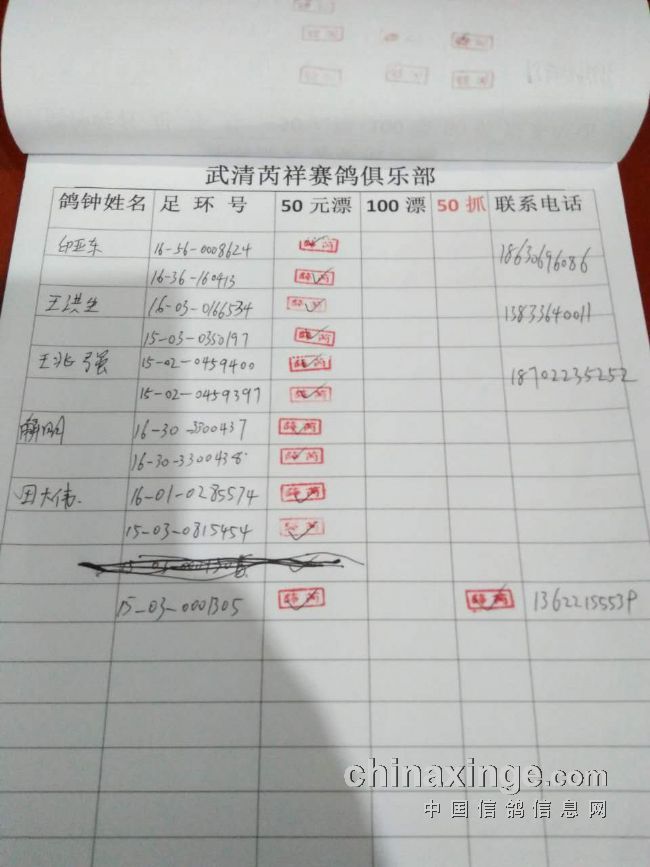 武清芮祥赛鸽俱乐部
鸽钟姓名 足环号 50元漂 100漂 50抓 联系电话
印亚东 16-56-0008624 18630696086
16-36-160413
王洪生 16-03-0166534 13833640011
15-03-0350197
王兆强 15-02-0459400 18702235252
15-02-0459397
解明 16-30-3300437
16-30-3300438
田大伟 16-01-0285574
15-03-0815454
15-03-0001305 13622155539
chinaxinge.com
中国信鸽信息网